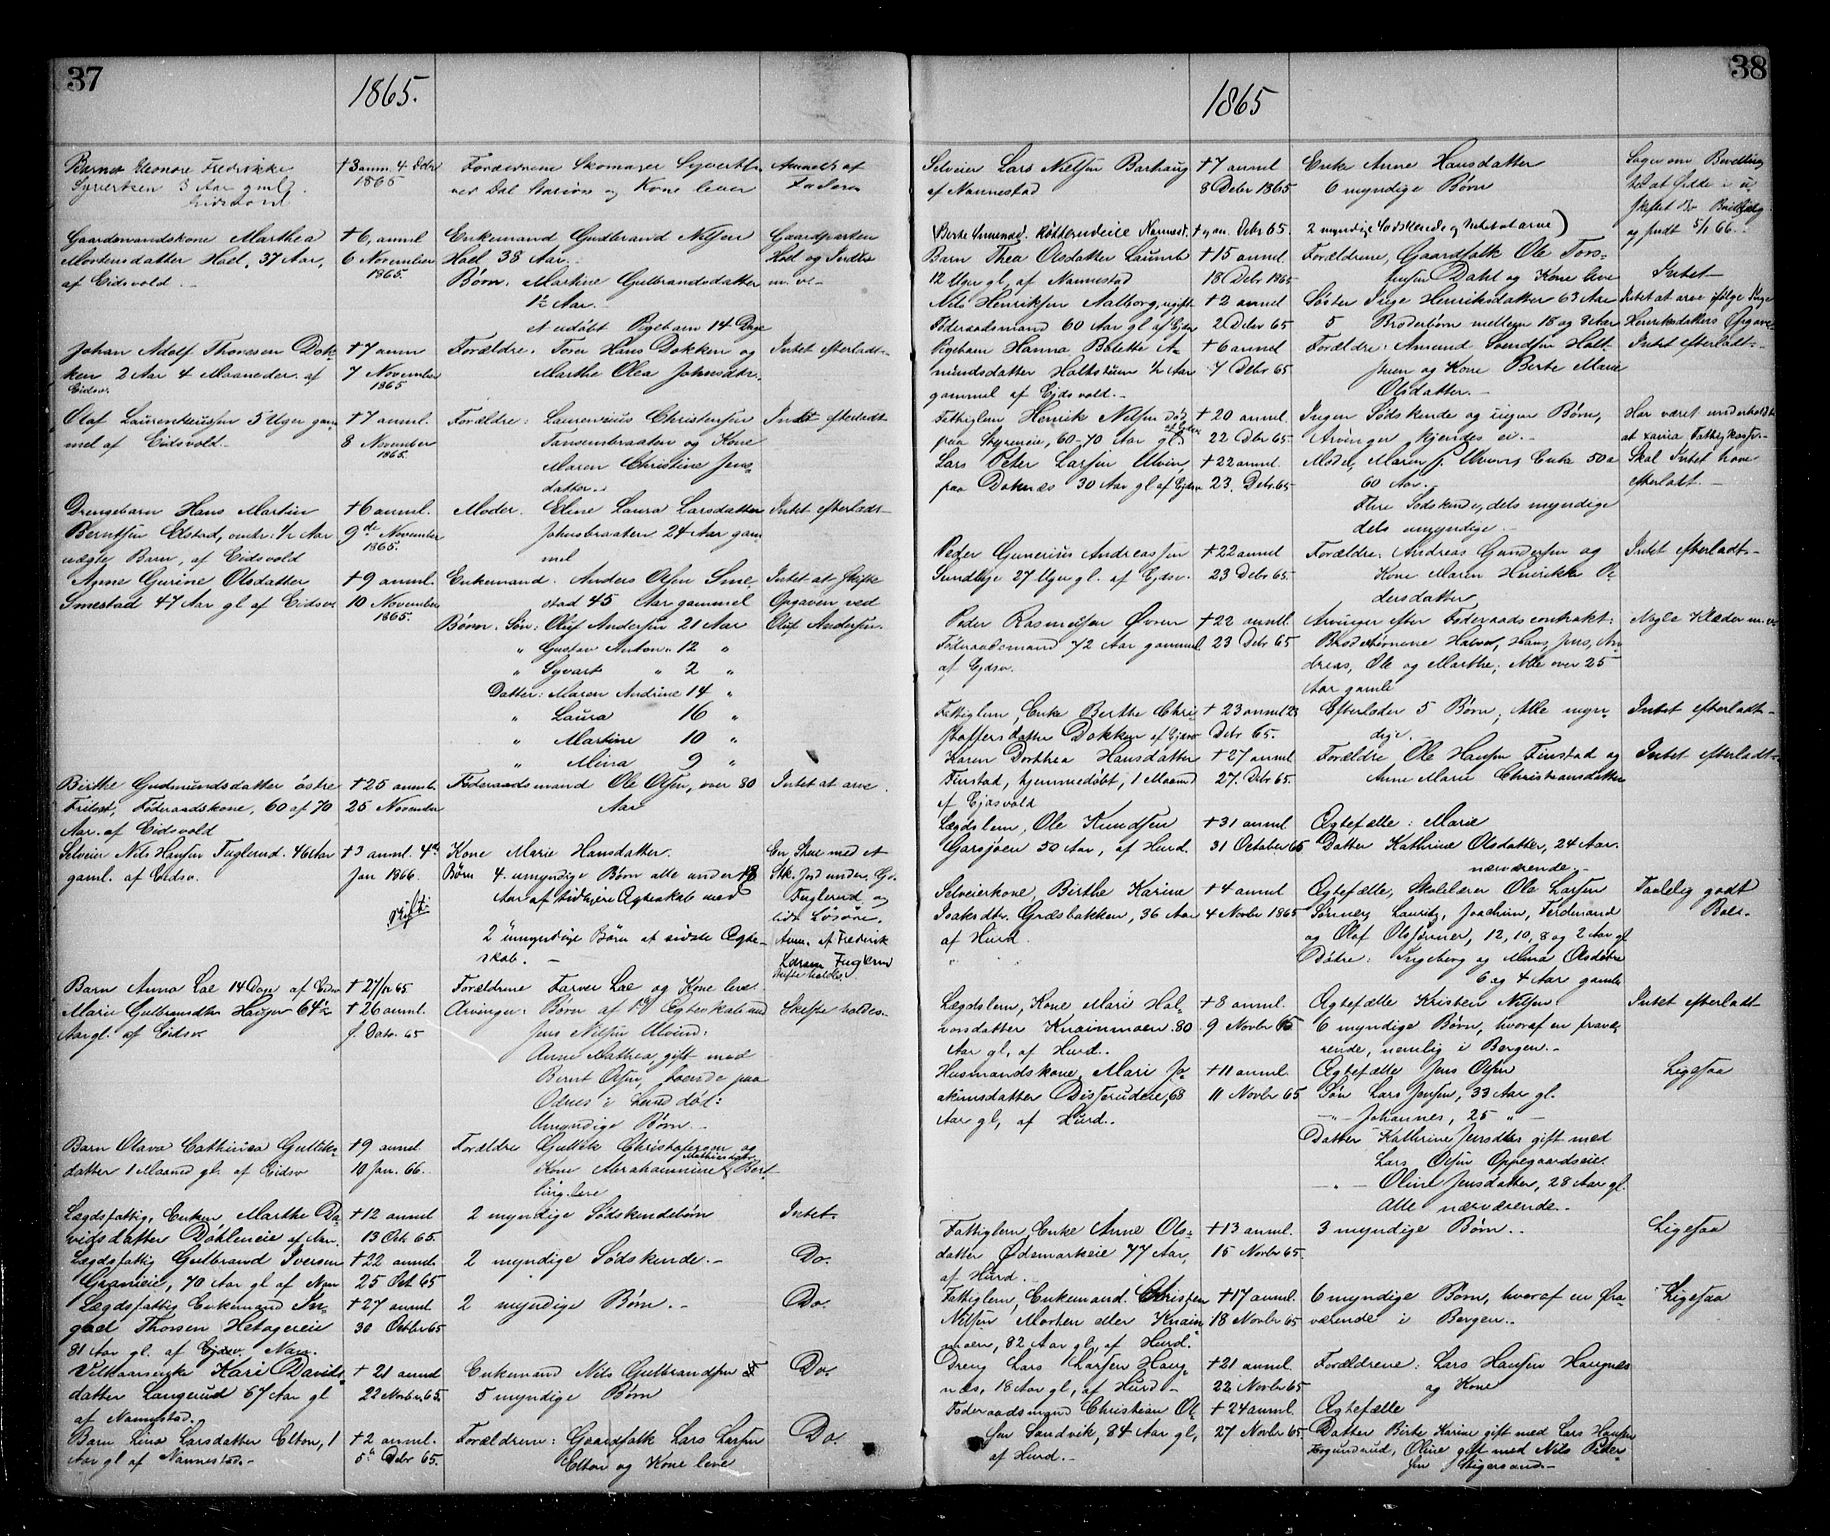 37
1865.
Barnet Eleonore Fredrikke
Syvertsen 3 Aar gml
Eidsvold
† 3 anm. 4 Debr
1865
Forældrene Skomager Syvertsen
ved Dal Station og Kone lever
Anmeldt af
Faderen
Gaardmandskone Marthea
Mortensdatter Hoel, 37 Aar,
af Eidsvold
† 6, anml
6 November
1865.
Enkemand Gudbrand Nilsen
Hoel 38 Aar.
Børn: Martine Gulbrandsdatter
1½ Aar.
et udøbt Pigebarn 14 Dage
Gaardparten
Hoel og Indbo
m. v.
Johan Adolf Thoresen Dok-
ken 2 Aar 4 Maaneder af
Eidsv.
† 7 anm
7 November
1865
Forældre. Tore Hans Dokken og
Marthe Olea Johnsdatr.
Intet efterladt
Olaf Laurentiussen 5 Uger gam
mel af Eidsvold.
† 7 anml.
8 November
1865.
Forældre: Laurensius Christensen
Jansenbraaten og Kone
Maren Christine Jens-
datter.
Intet efterladt
Drengebarn Hans Martin
Berntsen Elstad, omtr. ½ Aar
uægte Barn, af Eidsvold
† 6 anml.
9de November
1865.
Moder. Eline Laura Larsdatter
Johnsbraaten 24 Aar gam
mel
Intet efterladt
Anne Gurine Olsdatter
Smestad 47 Aar gl af Eidsv.
† 9 anml.
10 November
1865.
Enkemand. Anders Olsen Sme
stad 45 Aar gammel
Børn. Søn: Oluf Andersen 21 Aar
" Gustav Anton " 12 "
" Syvart " 2 "
Datter: Maren Andrine 14 "
" Laura 16 "
" Martine 10 "
" Mina 9 "
Intet at Skifte
Opgaven ved
Oluf Andersen.
Birthe Gudmundsdatter østre
Tribst, Føderaadskone, 60 af 70
Aar. af Eidsvold
† 25 anml.
25 November
Føderaadsmand Ole Olsen, over 80
Aar
Intet at arve.
Selveier Nils Hansen Fuglerud. 46 Aar
gaml. af Eidsv.
† 3 anml. 4de
Jan 1866.
Skift:
Kone Marie Hansdatter.
Børn 4 umyndige Børn alle under 18
Aar af tidligere Ægteskab med
2 umyndige Børn af sidste Ægte-
skab.
En Stue med et
Stk. Jord under Gd.
Fuglerud og
lidt Løsøre.
Anm. af Frederik
Larsen Fuglerud
Skifte holdes
Barn Anna Lae 14 Dage af Eidsv
† 27/12 65
Forældrene Farver Lae og Kone lever
Marie Gulbrandsdtr Hauger 64½
Aar gl. af Eidsv.
† 26 anml.
s. Dato. 65
Arvinger: Børn af 1ste Ægteskab med
Jens Nilsen Ulvind:
Anne Mathea, gift med
Bernt Olsen, boende paa
Odnes i Land død:
Umyndige Børn.
Skifte holdes.
Barn Olava Cathinca Gulliks-
datter 1 Maaned gl. af Eidsv
† 9 anml
10 Jan. 66.
Forældre Gullik Christofersen og
Kone Abrahammine Mathiesdatter Bert
ling lever
Lægdsfattig, Enken Marthe Da-
vidsdatter Døhleneie af Nan.
† 12 anml
13 Octr 65.
2 myndige Sødskendebørn
Intet.
Lægdsfattig Gulbrand Iversen
Graneeie, 70 Aar gl af Nan
† 22 anml
25 Oct 65
2 myndige Sødskende.
Do.
Lægdsfattig Enkemand In-
grad Thorsen Hetagereie
81 Aar gl. af Nan.
† 27 anml
30 Octbr 65
2 myndige Børn.
Do.
Vilkaarsenke Kari Davids-
datter Langerud 67 Aar gl
af Nannestad.
† 21 anml
22 Novbr. 65.
Enkemand Nils Gulbrandsen
5 myndige Børn
Do.
Barn Lina Larsdatter Elton, 1
Aar gl af Nannestad.
† 2 anml.
5 Debr 65.
Forældrene: Gaardfolk Lars Larsen
Elton og Kone leve
Do.
38
1865
Selveier Lars Nielsen Barhaug
af Nannestad
† 7 anml
8 Debr 1865
Enke Anne Hansdatter
6 myndige Børn
Søger om Bevilling
til at sidde i u-
skiftet Bo.
og sendt 5/1 66.
Berte Amunsd. Nannest.
† 4 an. Debr 65.
2 myndige Sødskende
Barn Thea Olsdatter Laurch
12 Uger gl, af Nannestad
† 15 anml
18 Debr 1865
Forældrene, Gaardfolk Ole Tors-
tensen Dahl og Kone leve
Intet
Nils Henriksen Aalborg, ugift
Føderaadsmand 60 Aar gl af Ejdsv
† 2 anml
2 Debr 65
Søster Inge Henriksdatter 63 Aar
5 Broderbørn mellem 18 og 8 Aar
Intet at arve ifølge Inge
Henriksdatters Opgave
Pigebarn Hanna Bolette A-
mundsdatter Holtstuen ½ Aar
gammel af Ejdsvold.
† 6 anml
7 Debr 65
Forældre: Amund Svendsen Holt-
stuen og Kone Berte Marie
Olsdatter.
Intet efterladt
Fattiglem Henrik Nilsen Død
paa Styreneie, 60-70 Aar gl af Ejdsv
† 20 anml
22 Dbr 65
Ingen Sødskende og ingen Børn,
Arvinger kjendes ei.
Har været underholdt
at Fattigkasse.
Lars Peter Larsen Ulvin,
paa Doknæs 30 Aar gl af Ejdsv
† 22 anml.
23. Debr 65
Moder, Maren Enke 50 a
60 Aar.
Flere Sødskende, dels myndige
dels umyndige.
Skal Intet have
efterladt.
Peder Gunerius Andreassen
Sundbye 27 Uger gl. af Ejdsv.
† 22 anml
23 Debr 65.
Forældre. Andreas Gundersen og
Kone Maren Henrikke Pe
dersdatter
Intet efterladt
Peder Rasmussen Øvren
Føderaadsmand 72 Aar gammel
af Ejdsv.
† 22 anml
23 Debr 65
Arvinger efter Føderaadscontrakt:
Broderbørnene Halvor, Hans, Jens, An-
dreas, Ole og Marthe; Alle over 25
Aar gamle
Nogle Klæder m. v.
Fattiglem, Enke Berthe Chri-
stoffersdatter Dokken af Ejdsv
† 23 anml 23
Debr 65.
Efterlader 5 Børn; Alle myn-
dige.
Intet efterladt
Karen Dorthea Hansdatter
Finstad, hjemmedøbt, 1 Maaned
af Ejdsvold
† 27 anml
27. Debr 65.
Forældre Ole Hansen Finstad og
Anne Marie Christiansdatter
Intet efterladt
Lægdslem, Ole Knudsen
Garsjøen 50 Aar, af Hurd.
† 31 anml
31 October 65
Ægtefælle: Marie
Datter Kathrine Olsdatter, 24 Aar.
nærværende.
Selveierkone, Birthe Karine
Isaksdtr. Græsbakken, 36 Aar
af Hurd.
† 4 anml
4 Novbr 1865
Ægtefælle, Skolelærer Ole Larsen
Sønner, Lauritz, Joachim, Ferdinand
og Olaf Olssønner, 12, 10, 8 og 2 Aar gl
Døtre: Ingeborg og Mina Olsdøtre
6 og 4 Aar gamle
Taalelig godt
Boe.
Lægdslem, Kone Mari Hal-
vorsdatter Knainmoen. 80
Aar gl, af Hurd.
† 8 anml.
9 Novbr 65
Ægtefælle Kristen Nilsen
6 myndige Børn, hvoraf en fravæ-
rende, nemlig i Bergen.
Intet efterladt
Husmandskone, Mari Jo-
akimsdatter Disserudeie, 68
Aar gl, af Hurd.
† 11 anml.
11 Novbr 65
Ægtefælle Jens Olsen
Søn Lars Jensen, 33 Aar gl.
" Johannes, 25 "
Datter Kathrine Jensdtr gift med
Lars Olsen Oppegaardseie.
" Oline Jensdatter, 28 Aar gl.
Alle nærværende.
Ligesaa
Fattiglem, Enke Anne Ols-
datter Ødemarkeie 77 Aar,
af Hurd.
† 13 anml.
15 Novbr 65
3 myndige Børn.
Ligesaa
Fattiglem, Enkemand Christen
Nilsen Morten eller Knain
moen, 82 Aar gl, af Hurd.
† 17 anml.
18 Novbr 65
6 myndige Børn, hvoraf en fra-
værende i Bergen.
Ligesaa
Dreng Lars Larsen Haug
næs, 18 Aar gl, af Hurd
† 21 anml.
22 Novbr 65
Forældrene: Lars Hansen Haugnæs
og Kone
Føderaadsmand Christian Ol-
sen Sandvik, 84 Aar gl,
af Hurd.
† 24 anml.
27 Novbr 65
Ægtefælle
Datter Birte Karine gift med Lars Hansen
Oline gift med Nils Peder
sen Stigersand.